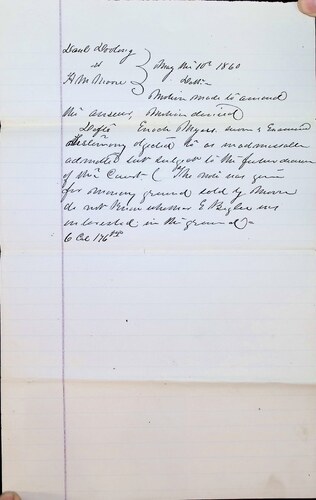 May the 10th 1860
H. M. Moore
Motion made to amend
the answer, Motion denied
Defts Enoch Myers sworn & Examined
Testimony objected to as inadmissible
admitted but subject to the future
of the Court ( The note was given
for mining ground sold by Moore
do not know whether E Bigler was
interested in the ground) -
6 Cal 176